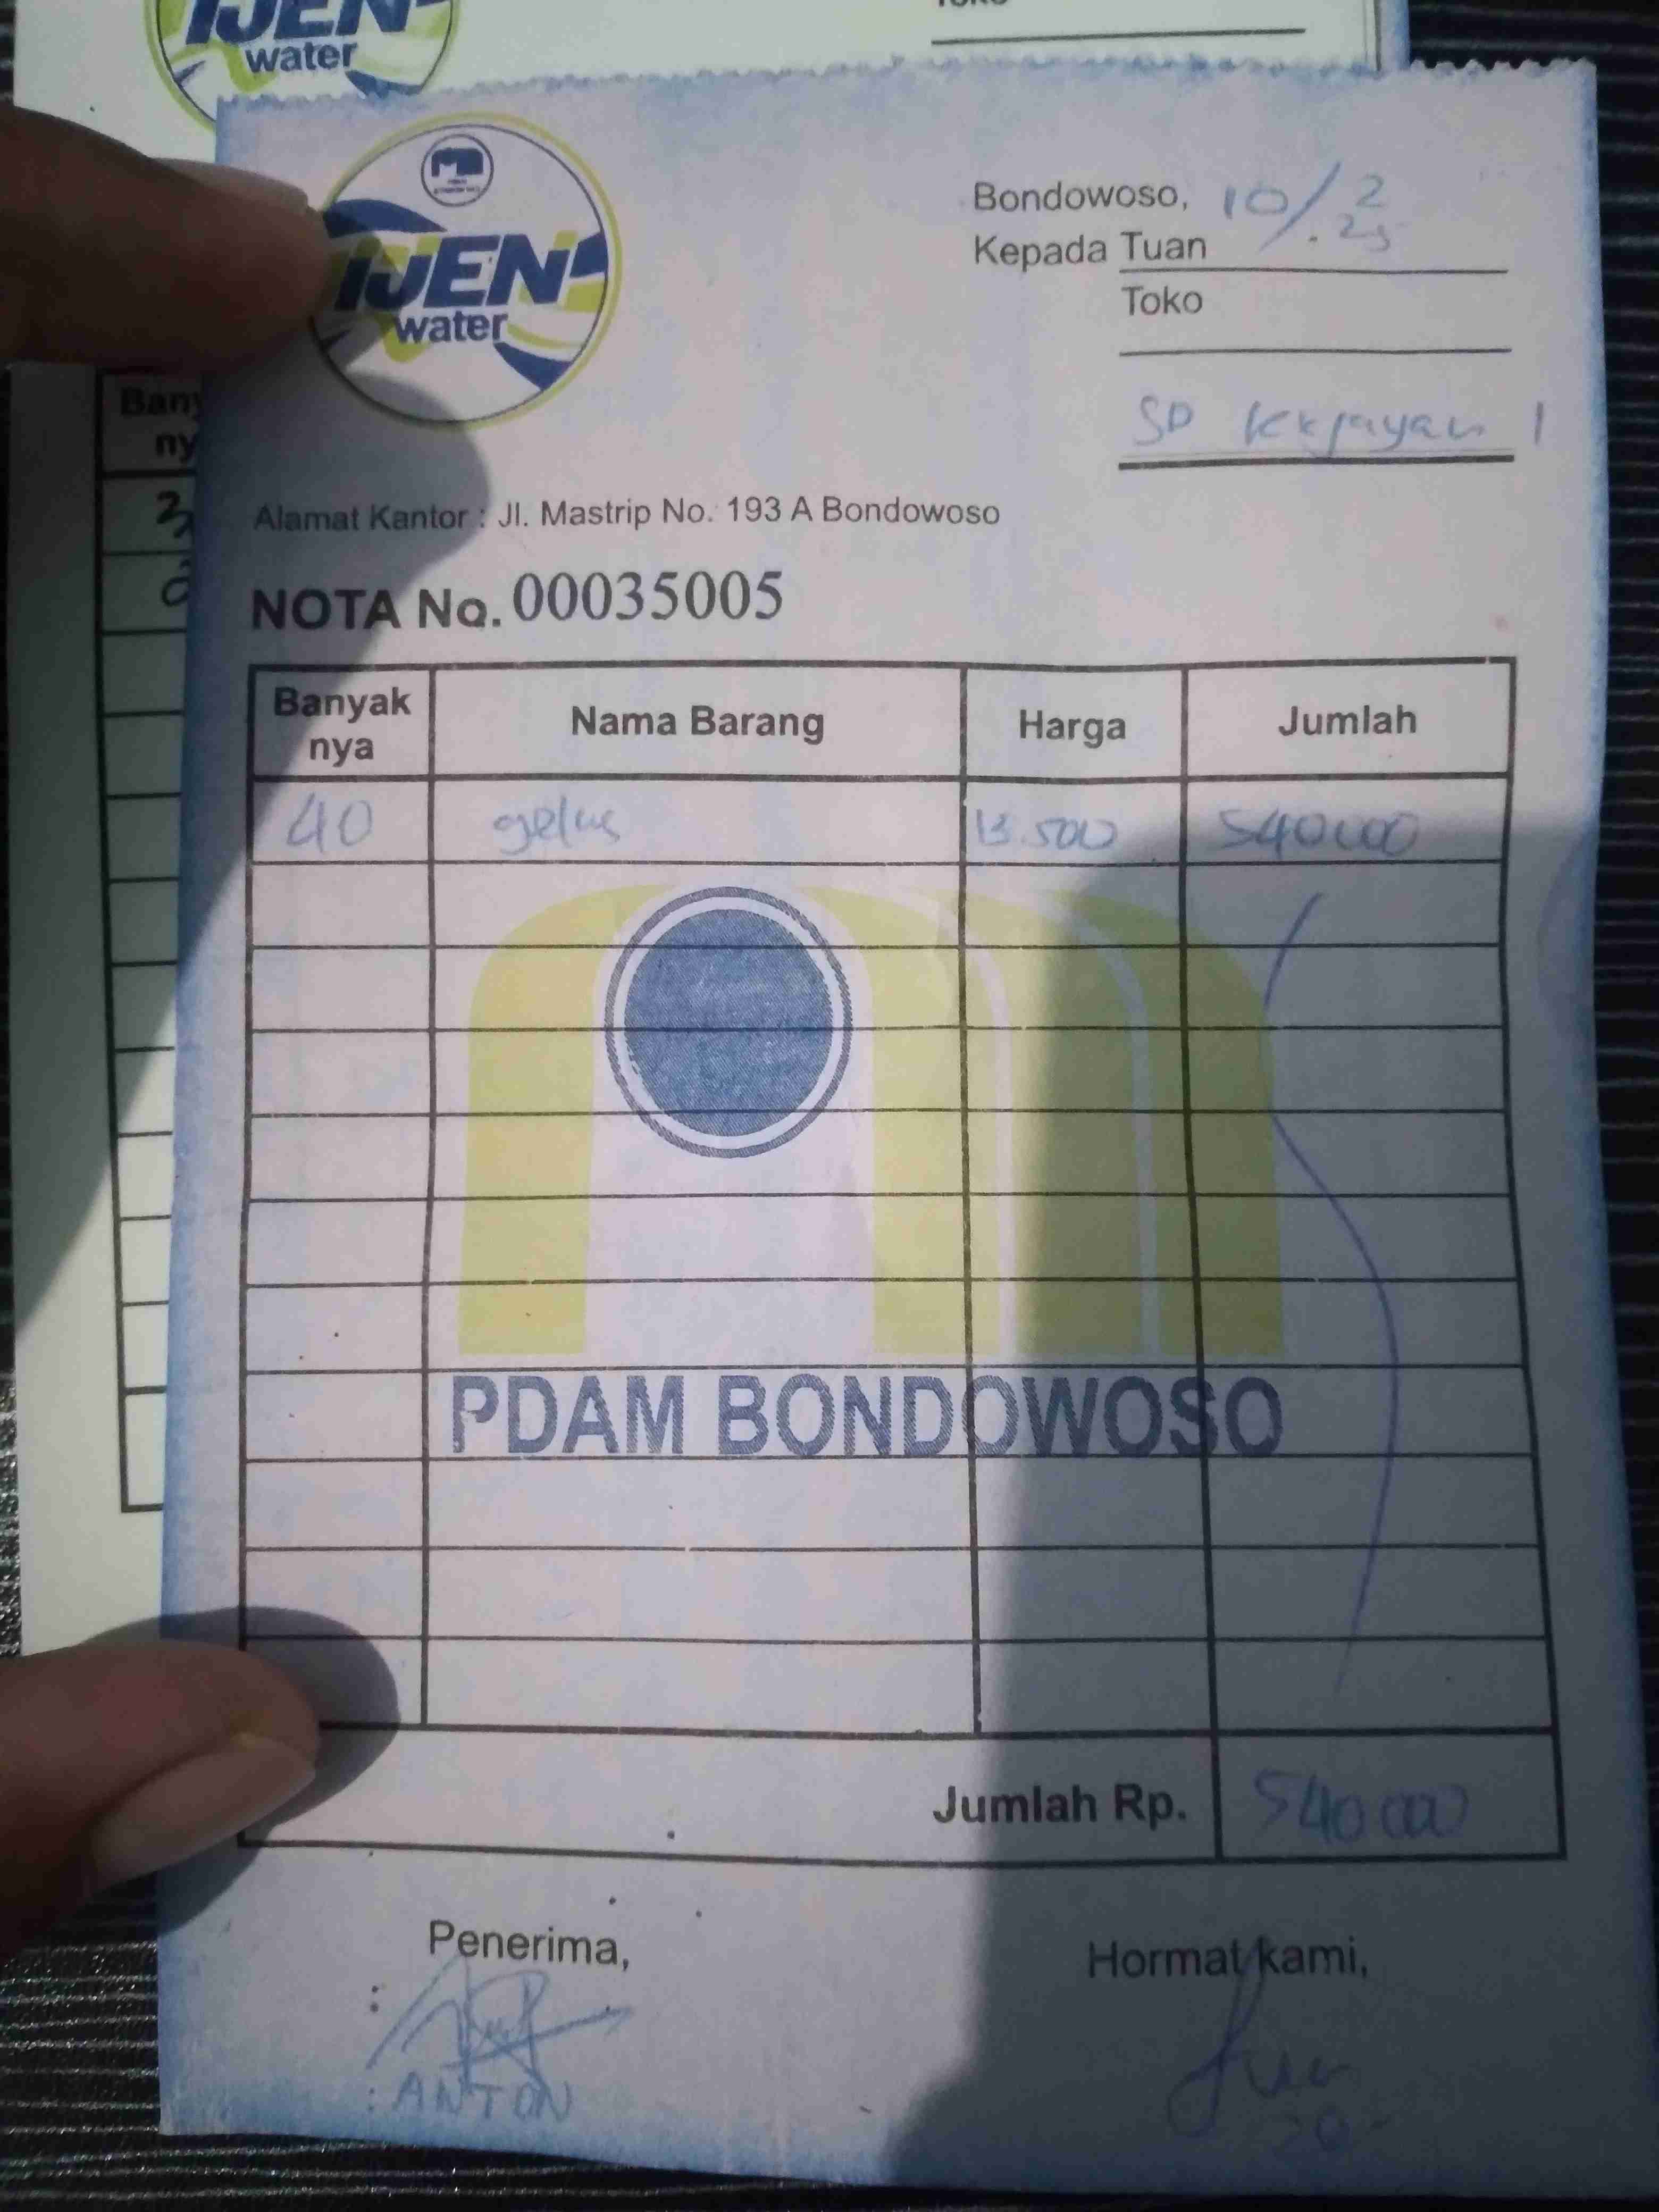 IJEN
water
Toko
IJEN
water
Bondowoso, 10/2.25
Kepada Tuan
Toko
SD Kejayan 1
Alamat Kantor : Jl. Mastrip No. 193 A Bondowoso
NOTA No. 00035005
Banyak nya Nama Barang Harga Jumlah
40 gelas 13.500 540000
PDAM BONDOWOSO
Jumlah Rp. 540000
Penerima, Hormat kami,
ANTON